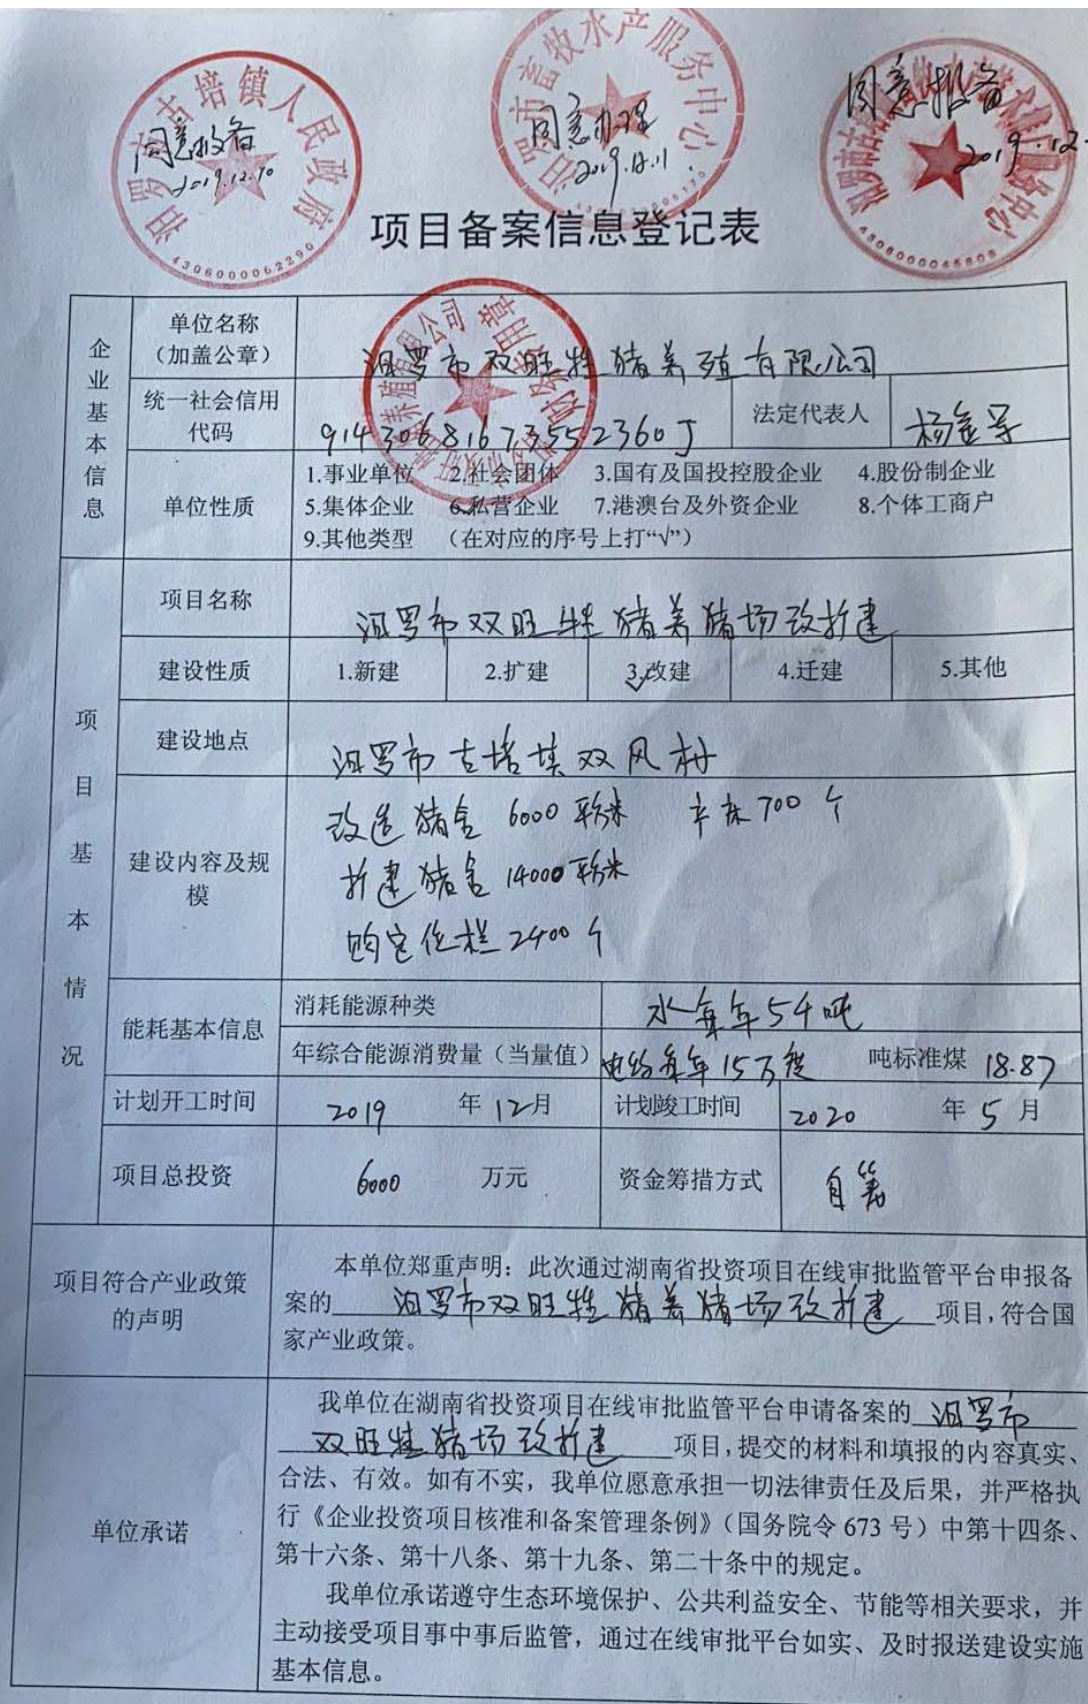 汨罗市古培镇人民政府
同意报备
2019.12.10
4306000062290
汨罗市畜牧水产服务中心
同意办理
2019.12.11
同意报备
2019.12.
项目备案信息登记表
企业基本信息
单位名称
（加盖公章）
汨罗市双旺牲猪养殖有限公司
统一社会信用
代码
法定代表人
单位性质
1.事业单位 2.社会团体 3.国有及国投控股企业 4.股份制企业
5.集体企业 6.私营企业 7.港澳台及外资企业 8.个体工商户
9.其他类型 （在对应的序号上打“√”）
项目基本情况
项目名称
汨罗市双旺牲猪养猪场改扩建
建设性质
1.新建 2.扩建 3.改建 4.迁建 5.其他
建设地点
汨罗市古培镇双凤村
建设内容及规
模
改造猪舍 6000平方米 产床700个
扩建猪舍 14000平方米
购定位栏2400个
能耗基本信息
消耗能源种类
水每年5千吨
年综合能源消费量（当量值）
电约每年15万度 吨标准煤 18.87
计划开工时间
2019 年 12月
计划竣工时间
2020 年 5 月
项目总投资
6000 万元
资金筹措方式
自筹
项目符合产业政策
的声明
本单位郑重声明：此次通过湖南省投资项目在线审批监管平台申报备
案的 汨罗市双旺牲猪养猪场改扩建 项目，符合国
家产业政策。
单位承诺
我单位在湖南省投资项目在线审批监管平台申请备案的 汨罗市
双旺牲猪场改扩建 项目，提交的材料和填报的内容真实、
合法、有效。如有不实，我单位愿意承担一切法律责任及后果，并严格执
行《企业投资项目核准和备案管理条例》（国务院令 673 号）中第十四条、
第十六条、第十八条、第十九条、第二十条中的规定。
我单位承诺遵守生态环境保护、公共利益安全、节能等相关要求，并
主动接受项目事中事后监管，通过在线审批平台如实、及时报送建设实施
基本信息。